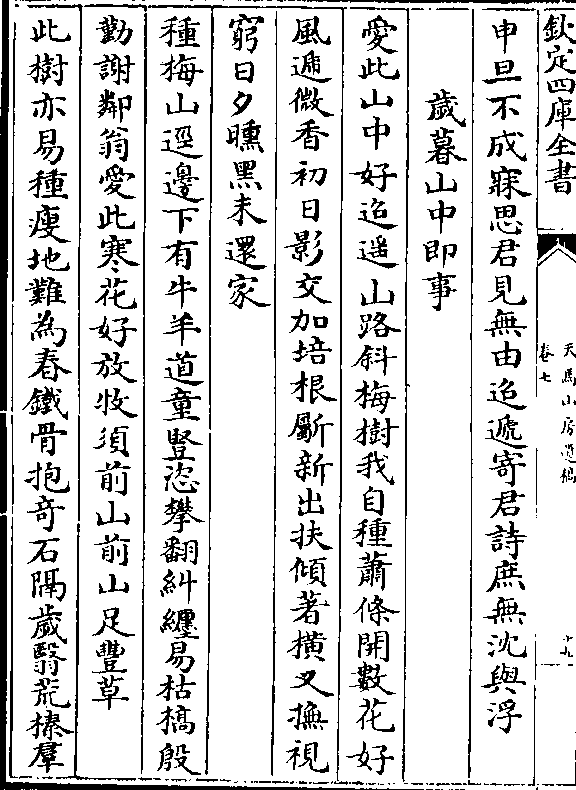 欽定四庫全書
天馬山房遺稿
卷七
十九
申旦不成寐思君見無由迢遞寄君詩庶無沈與浮
歲暮山中即事
愛此山中好迢遥山路斜梅樹我自種蕭條開數花好
風遞微香初日影交加培根斸新出扶傾著橫叉撫視
窮日夕曛黑未還家
種梅山逕邊下有牛羊道童豎恣攀翻糾纏易枯槁殷
勤謝鄰翁愛此寒花好放牧須前山前山足豐草
此樹亦易種瘦地難為春鐵骨抱奇石隔歲翳荒榛羣